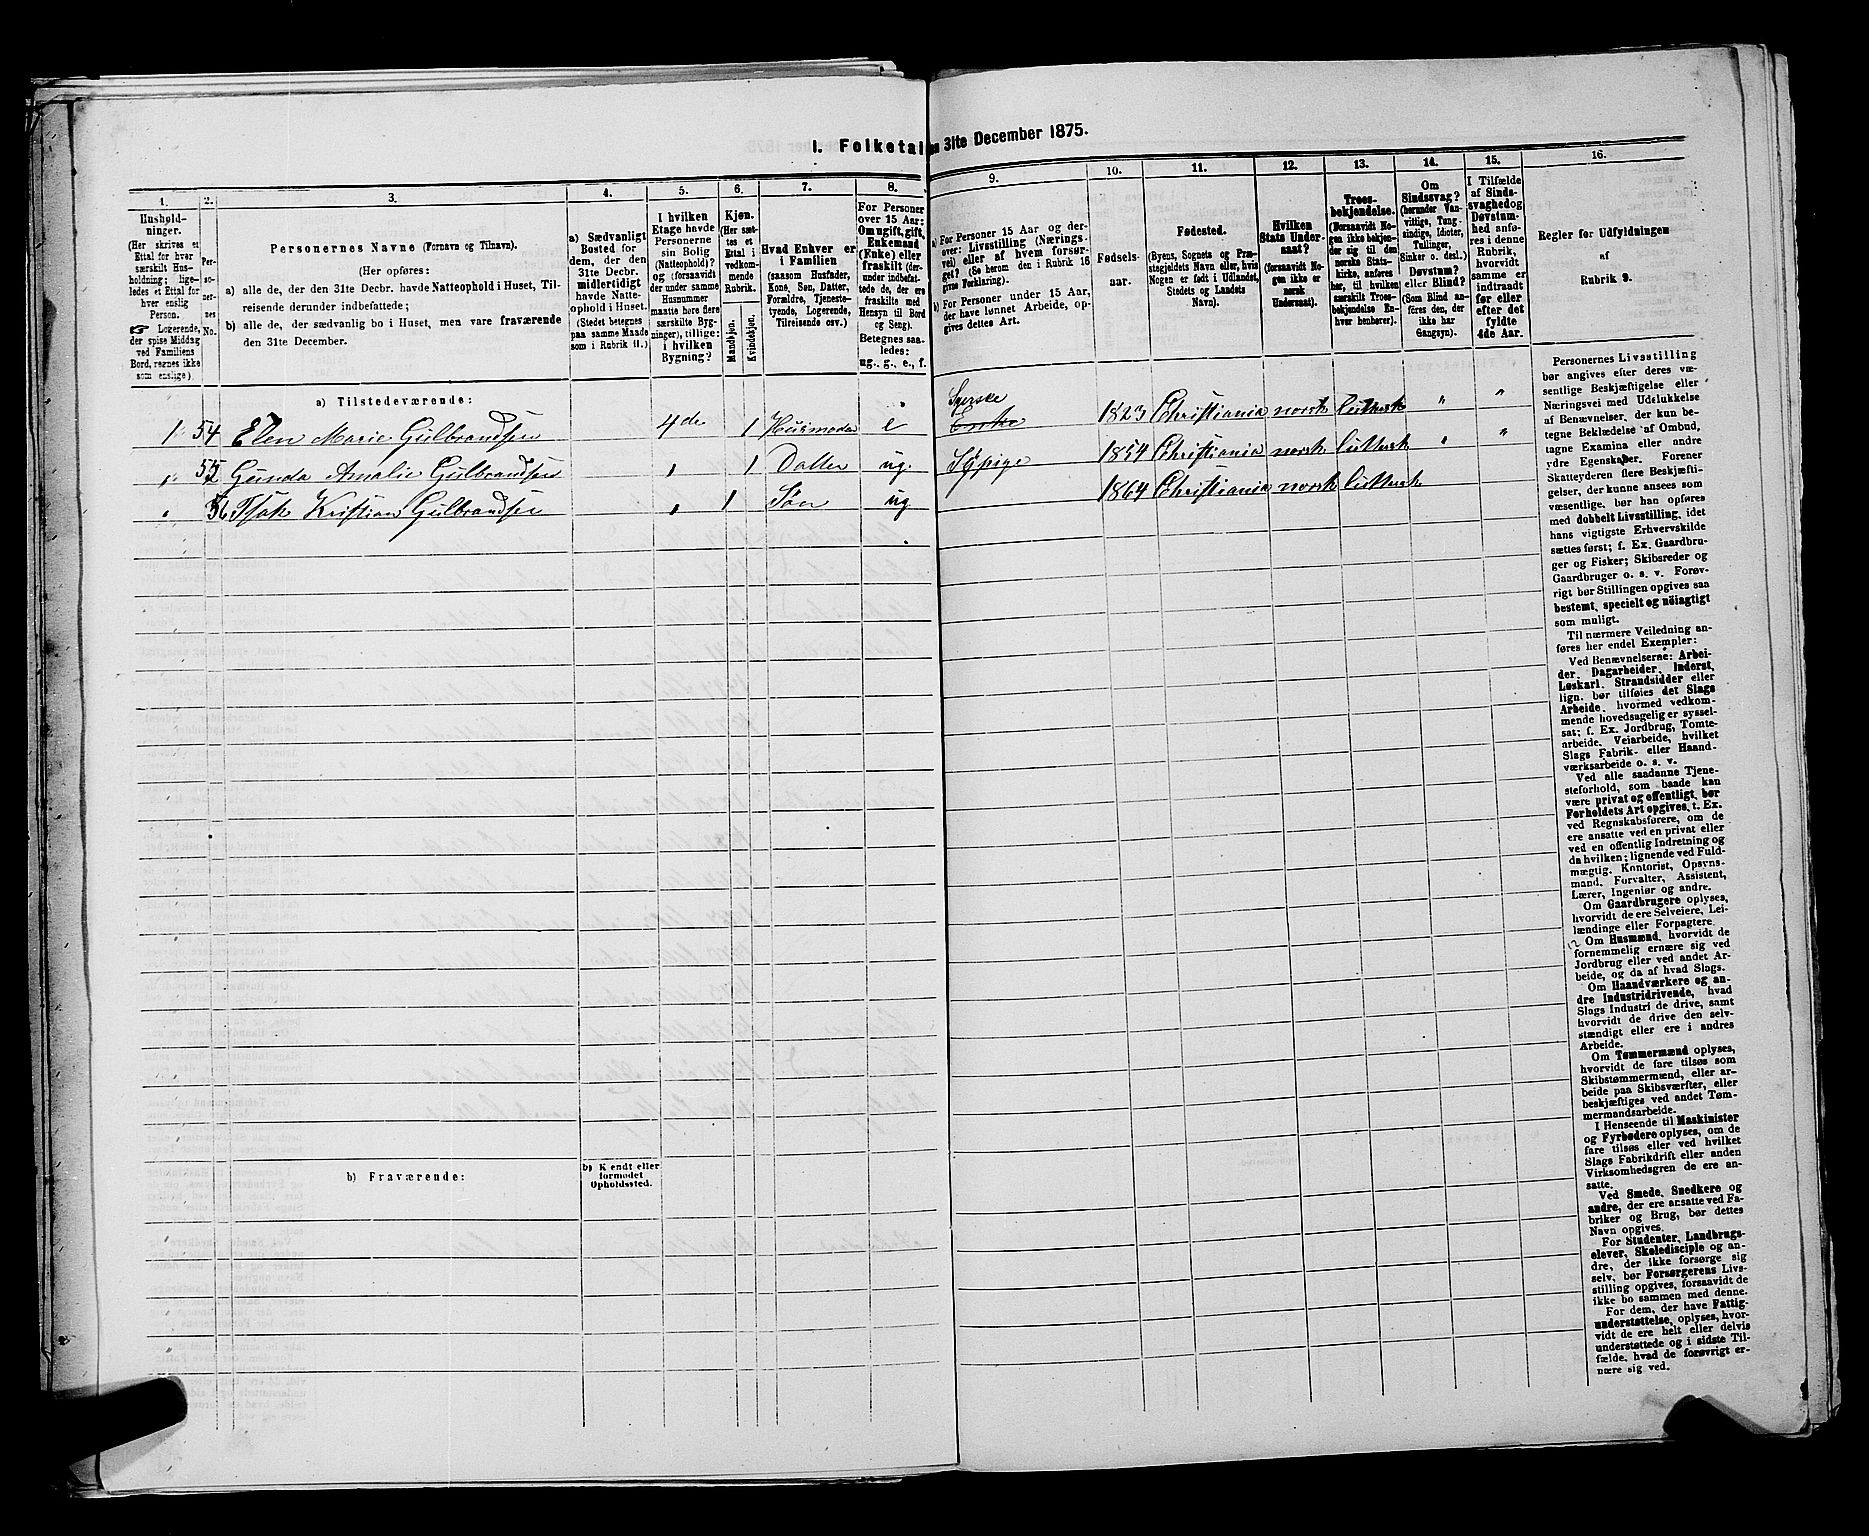 1. Folketal den 31te December 1875.
1.
2.
3.
4.
5.
6.
7.
8.
9.
10.
11.
12.
13.
14.
15.
16.
Hushold-
ninger.
(Her skrives et
Ettal for hver
særskilt Hus-
holdning; lige-
ledes et Ettal for
hver enslig
Person.
☞ Logerende,
der spise Middag
ved Familiens
Bord, regnes ikke
som enslige).
Per-
soner-
nes
No.
Personernes Navne (Fornavn og Tilnavn).
(Her opføres:
a) alle de, der den 31te Decbr. havde Natteophold i Huset, Til-
reisende derunder indbefattede;
b) alle de, der sædvanlig bo i Huset, men vare fraværende
den 31te December.
a) Sædvanligt
Bosted for
dem, der den
31te Decbr.
midlertidigt
havde Natte-
ophold i Huset.
(Stedet betegnes
paa samme Maade
som i Rubrik 11.)
I hvilken
Etage havde
Personerne
sin Bolig
(Natteophold)?
og (forsaavidt
der under samme
Husnummer
maatte høre flere
særskilte Byg-
ninger), tillige:
i hvilken
Bygning?
Kjøn.
(Her sæt-
tes et
Ettal i
vedkom-
mende
Rubrik.
Mandkjøn.
Kvindekjøn.
Hvad Enhver er
i Familien
(saasom Husfader,
Kone, Søn, Datter,
Forældre, Tjeneste-
tyende, Logerende,
Tilreisende osv.)
For Personer
over 15 Aar:
Om ugift, gift,
Enkemand
(Enke) eller
fraskilt (der-
under indbefat-
tede de, der ere
fraskilte med
Hensyn til Bord
og Seng).
Betegnes saa-
ledes:
ug., g., e., f.
a) For Personer 15 Aar og der-
over: Livsstilling (Nærings-
vei) eller af hvem forsør-
get? (Se herom den i Rubrik 16
givne Forklaring).
b) For Personer under 15 Aar,
der have lønnet Arbeide, op-
gives dettes Art.
Fødsels-
aar.
Fødested.
(Byens, Sognets og Præ-
stegjeldets Navn eller, hvis
Nogen er født i Udlandet,
Stedets og Landets
Navn).
Hvilken
Stats Under-
saat?
(forsaavidt No-
gen ikke er
norsk
Undersaat).
Troes-
bekjendelse.
(Forsaavidt No-
gen ikke bekjen-
der sig til den
norske Stats-
kirke, anføres
her, til hvilken
særskilt Troes-
bekjendelse En-
hver henhører).
Om
Sindssvag?
(herunder Van-
vittige, Tung-
sindige, Idioter,
Tullinger,
Sinker o. desl.)
Døvstum?
eller Blind?
(Som Blind an-
føres den, der
ikke har
Gangsyn).
I Tilfælde
af Sinds-
svaghed og
Døvstum-
hed anfø-
res i denne
Rubrik,
hvorvidt
samme er
indtraadt
før eller
efter det
fyldte
4de Aar.
Regler for Udfyldningen
af
Rubrik 9.
a) Tilstedeværende:
1 54 Elen Marie Gulbrandsen 4de 1 Husmoder e Syerske Enke 1823 Christiania norsk luthersk " "
" 55 Gunda Amalie Gulbrandsen " 1 Datter ug. Sypige 1854 Christiania norsk luthersk " "
" 56 Isak Kristian Gulbrandsen " 1 Søn ug 1864 Christiania norsk luthersk
b) Fraværende:
b) Kjendt eller
formodet
Opholdssted.
Personernes Livsstilling
bør angives efter deres væ-
sentlige Beskjæftigelse eller
Næringsvei med Udelukkelse
af Benævnelser, der kun be-
tegne Beklædelse af Ombud,
tagne Examina eller andre
ydre Egenskaber. Forener
Skatteyderen flere Beskjæfti-
gelser, der kunne ansees som
væsentlige, bør han opføres
med dobbelt Livsstilling, idet
hans vigtigste Erhvervskilde
sættes først; f. Ex. Gaardbru-
ger og Fisker; Skibsreder og
Gaardbruger o. s. v. Forøv-
rigt bør Stillingen opgives saa
bestemt, specielt og nöiagtigt
som muligt.
Til nærmere Veiledning an-
føres her endel Exempler:
Ved Benævnelserne: Arbei-
der, Dagarbeider, Inderst,
Løskarl, Strandsidder eller
lign. bør tilføies det Slags
Arbeide, hvormed vedkom-
mende hovedsagelig er syssel-
sat; f. Ex. Jordbrug, Tomte-
arbeide, Veiarbeide, hvilket
Slags Fabrik- eller Haand-
værksarbeide o. s. v.
Ved alle saadanne Tjene-
steforhold, som baade kan
være privat og offentligt, bør
Forholdets Art opgives, t. Ex.
ved Regnskabsførere, om de
ere ansatte ved en privat eller
ved en offentlig Indretning og
da hvilken; lignende ved Fuld-
mægtig, Kontorist, Opsyns-
mand, Forvalter, Assistent,
Lærer, Ingeniør og andre.
Om Gaardbrugere oplyses,
hvorvidt de ere Selveiere, Lei-
lændinge eller Forpagtere.
Om Husmænd, hvorvidt de
fornemmelig ernære sig ved
Jordbrug eller ved andet Ar-
beide, og da af hvad Slags.
Om Haandværkere og an-
dre Industridrivende, hvad
Slags Industri de drive, samt
hvorvidt de drive den selv-
stændigt eller ere i andres
Arbeide.
Om Tømmermænd oplyses,
hvorvidt de fare tilsøs som
Skibstømmermænd, eller ar-
beide paa Skibsværfter, eller
beskjæftiges ved andet Tøm-
mermandsarbeide.
I Henseende til Maskinister
og Fyrbødere oplyses, om de
fare tilsøs eller ved hvilket
Slags Fabrikdrift eller anden
Virksomhedsgren de ere an-
satte.
Ved Smede, Snedkere og
andre, der ere ansatte ved Fa-
briker og Brug, bør dettes
Navn opgives.
For Studenter, Landbrugs-
elever, Skoledisciple og an-
dre, der ikke forsørge sig
selv, bør Forsørgerens Livs-
stilling opgives, forsaavidt de
ikke bo sammen med denne.
For dem, der have Fattig-
understøttelse, oplyses, hvor-
vidt de ere helt eller delvis
understøttede og i sidste Til-
fælde, hvad de forøvrigt er-
nære sig ved.